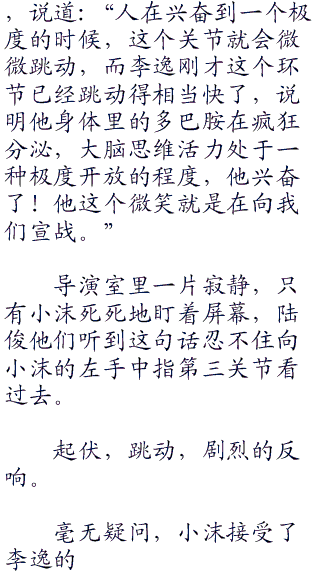 ，说道：“人在兴奋到一个极
度的时候，这个关节就会微
微跳动，而李逸刚才这个环
节已经跳动得相当快了，说
明他身体里的多巴胺在疯狂
分泌，大脑思维活力处于一
种极度开放的程度，他兴奋
了！他这个微笑就是在向我
们宣战。”
导演室里一片寂静，只
有小沫死死地盯着屏幕，陆
俊他们听到这句话忍不住向
小沫的左手中指第三关节看
过去。
起伏，跳动，剧烈的反
响。
毫无疑问，小沫接受了
李逸的